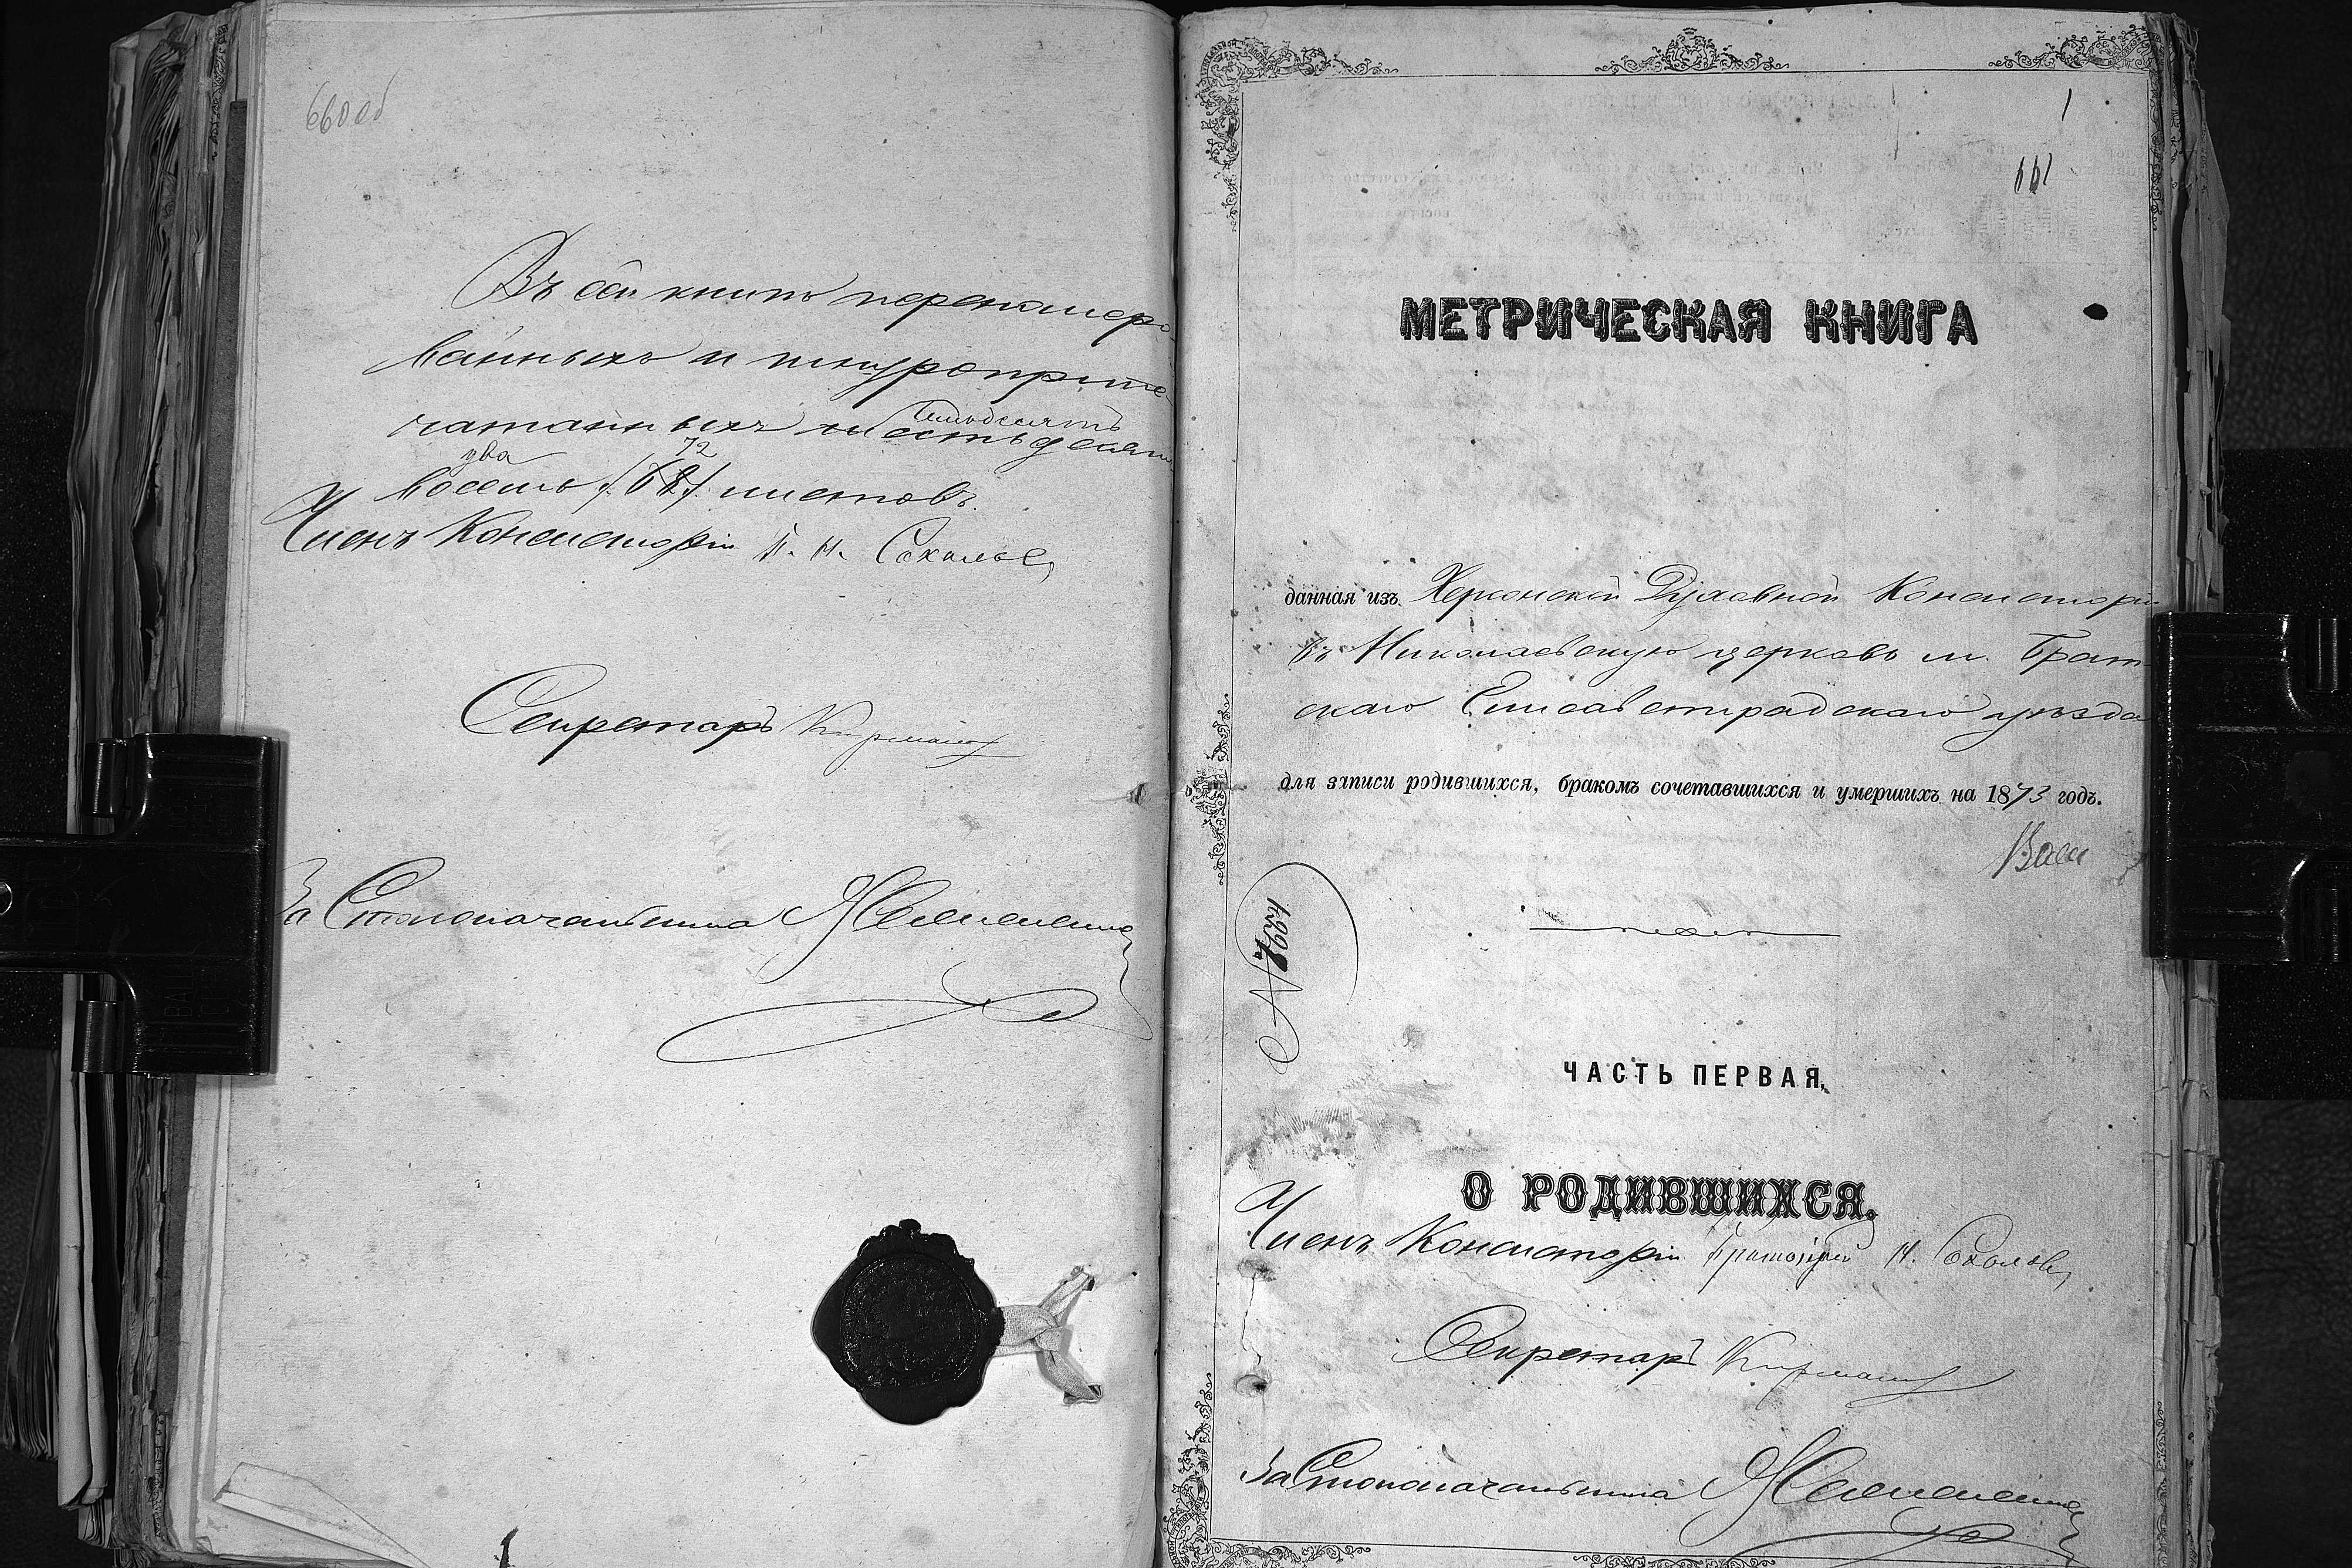 660 об
Въ сей книгѣ перенумеро-
ванныхъ и шнуроприпе-
чатанныхъ шестьдесятъ
семьдесятъ
два 72
восемь /68/ листовъ.
Членъ Консисторіи П. Н. Соколовъ
Секретарь
За Столоначальника
1
661
МЕТРИЧЕСКАЯ КНИГА
данная изъ Херсонской Духовной Консисторіи
въ Николаевскую церковь м. Брат-
скаго Елисаветградскаго уѣзда
для записи родившихся, бракомъ сочетавшихся и умершихъ на 1873 годъ.
ЧАСТЬ ПЕРВАЯ,
О РОДИВШИХСЯ.
Членъ Консисторіи Протоіерей Н. Соколовъ
Секретарь
За Столоначальника